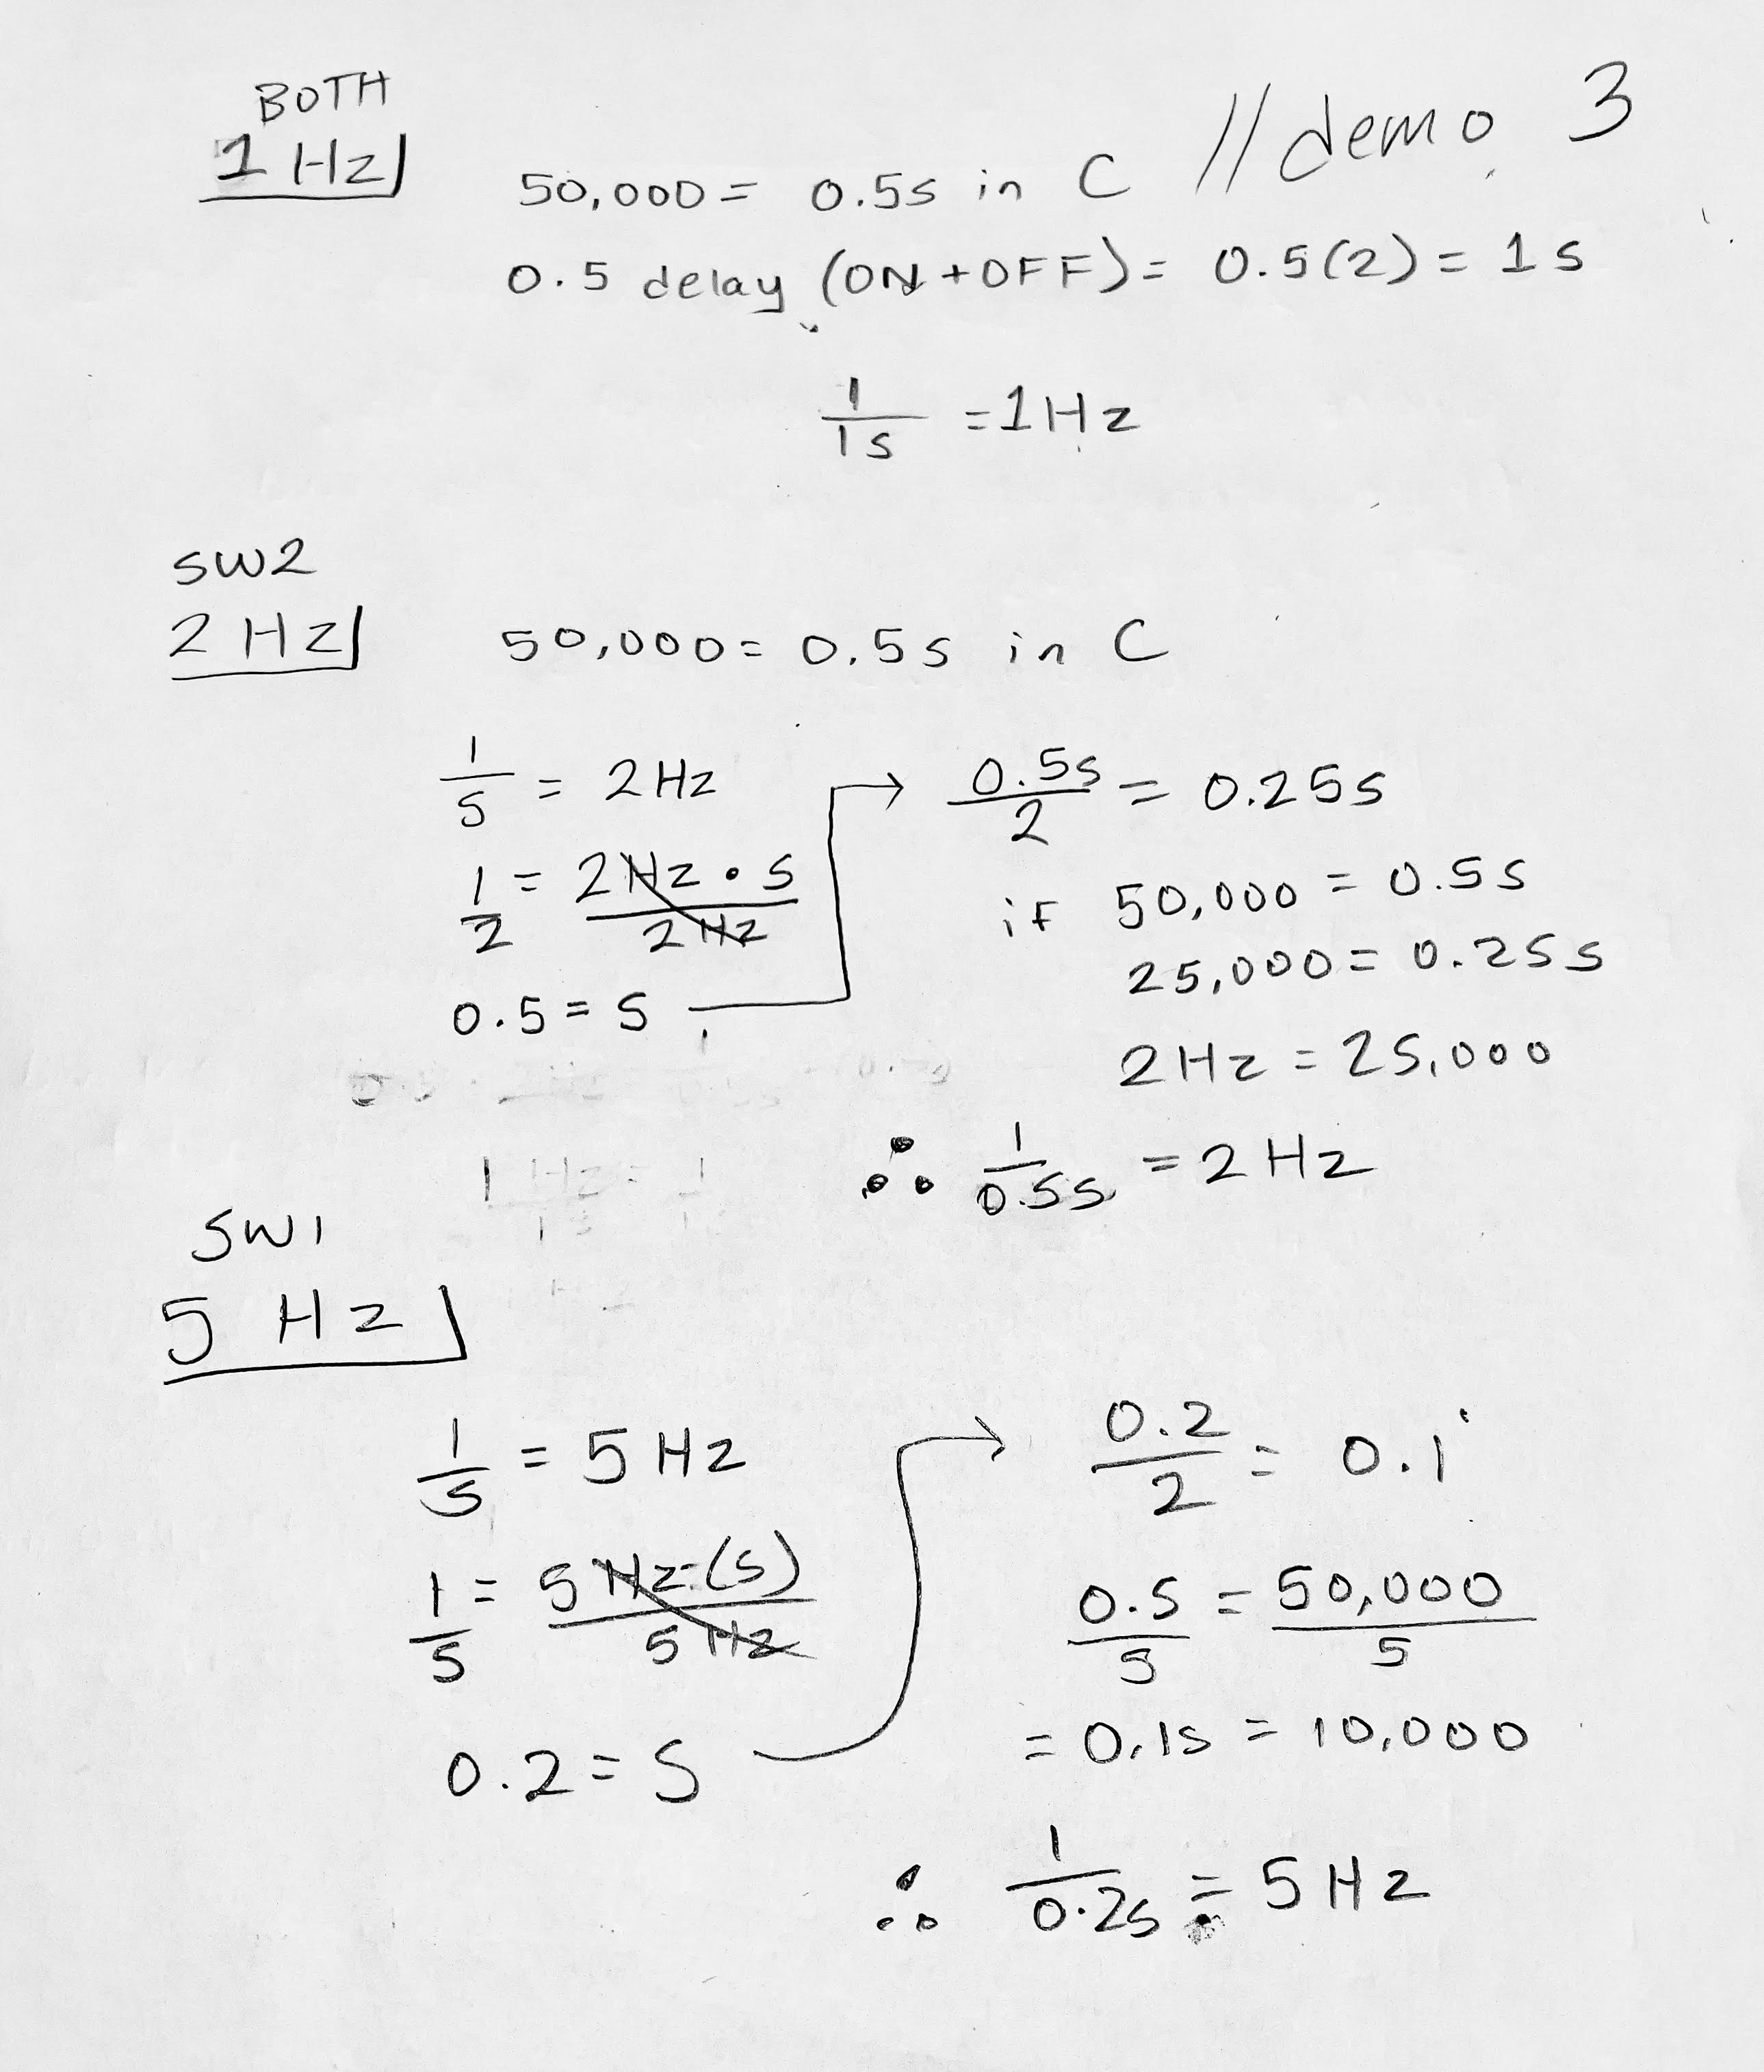 BOTH
1 Hz
//demo 3
50,000 = 0.5s in C
0.5 delay (ON + OFF) = 0.5(2) = 1s
1/1s = 1Hz
SW2
2 Hz
50,000 = 0.5s in C
1/s = 2Hz
1/2 = 2Hz • s / 2Hz
0.5 = s
→ 0.5s/2 = 0.25s
if 50,000 = 0.5s
25,000 = 0.25s
2Hz = 25,000
∴ 1/0.5s = 2Hz
SW1
5 Hz
1/s = 5Hz
1/5 = 5Hz(s) / 5Hz
0.2 = s
→ 0.2/2 = 0.1
0.5/5 = 50,000/5
= 0.1s = 10,000
∴ 1/0.2s = 5Hz